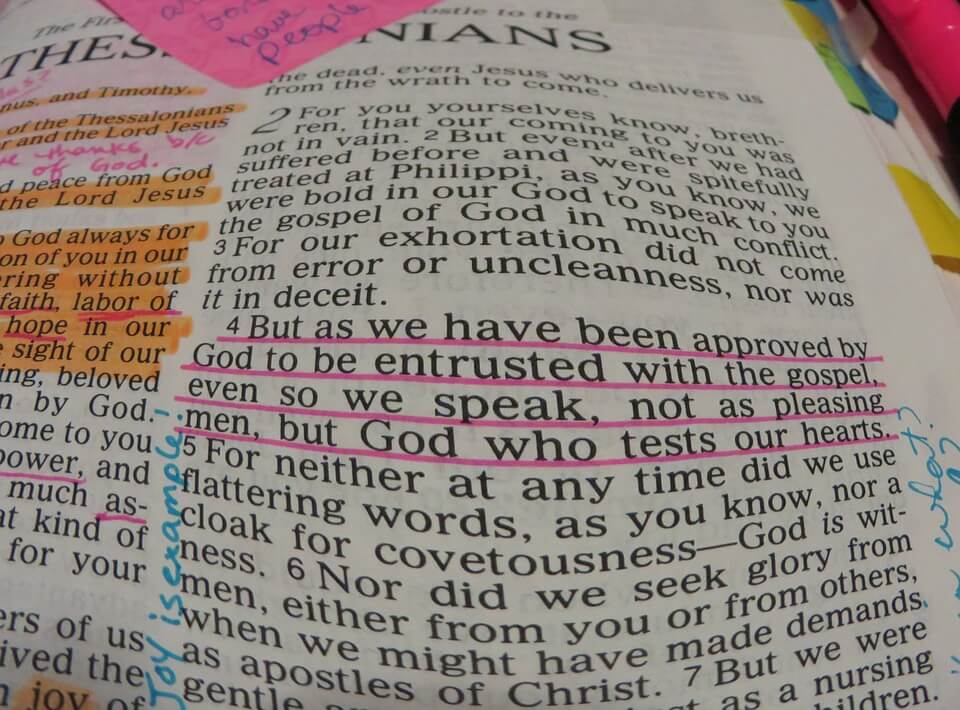 have
people
The First
ostle to the
THES
NIANS
nus, and Timothy,
of the Thessalonians
and the Lord Jesus
thanks b/c
of God.
d peace from God
the Lord Jesus
God always for
on of you in our
ering without
faith, labor of
hope in our
sight of our
ing, beloved
n by God.
ome to you
power, and
much as-
at kind of
for your
ers of us
ived the
joy of
Joy is example
the dead, even Jesus who delivers us
from the wrath to come.
2 For you yourselves know, breth-
ren, that our coming to you was
not in vain. 2 But evenᵃ after we had
suffered before and were spitefully
treated at Philippi, as you know, we
were bold in our God to speak to you
the gospel of God in much conflict.
3 For our exhortation did not come
from error or uncleanness, nor was
it in deceit.
4 But as we have been approved by
God to be entrusted with the gospel,
even so we speak, not as pleasing
men, but God who tests our hearts.
5 For neither at any time did we use
flattering words, as you know, nor a
cloak for covetousness—God is wit-
ness. 6 Nor did we seek glory from
men, either from you or from others,
when we might have made demands
as apostles of Christ. 7 But we were
gentle
as a nursing
children.
what?